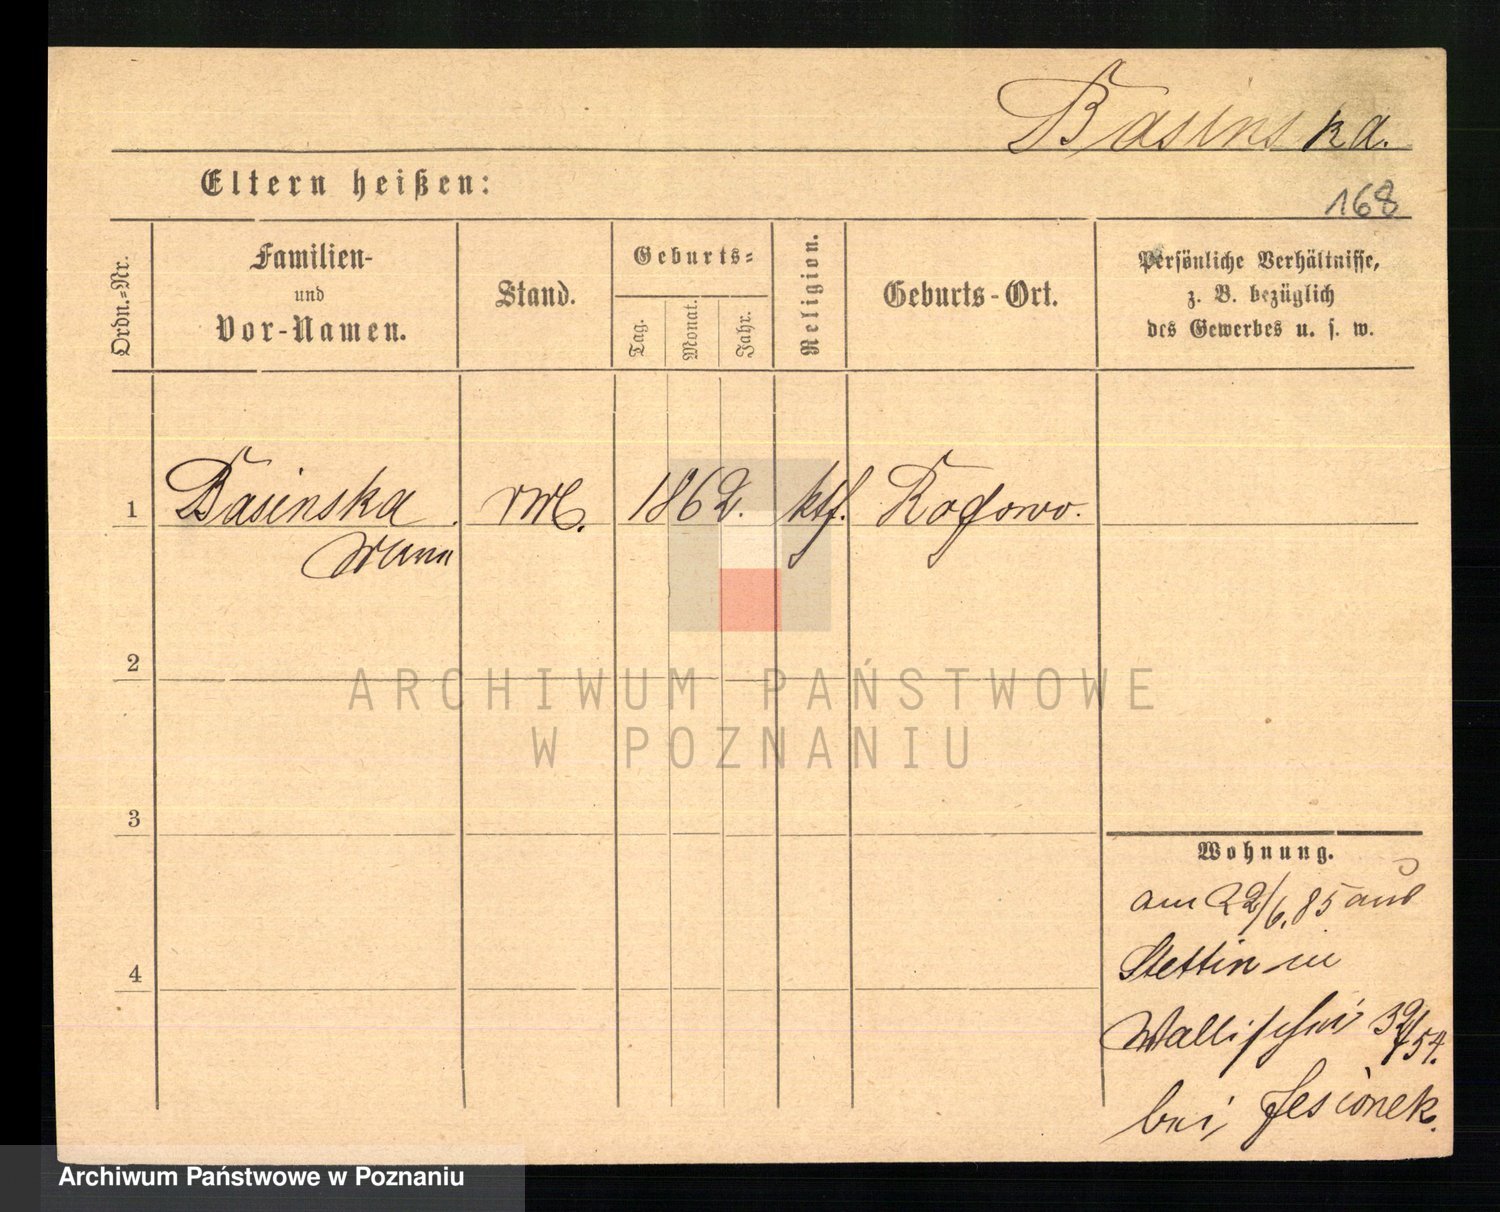 Basinska.
Eltern heißen:
168
Ordn.=Nr.
Familien-
und
Vor-Namen.
Stand.
Geburts=
Tag.
Monat.
Jahr.
Religion.
Geburts-Ort.
Persönliche Verhältnisse,
z. B. bezüglich
des Gewerbes u. s. w.
1 Basinska. 1862. ktf. Rogowo.
2
ARCHIWUM PAŃSTWOWE
W POZNANIU
3
Wohnung.
am 22/6.85 aus
4
Stettin in
Wallischei 39/54.
bei Jesionek.
Archiwum Państwowe w Poznaniu